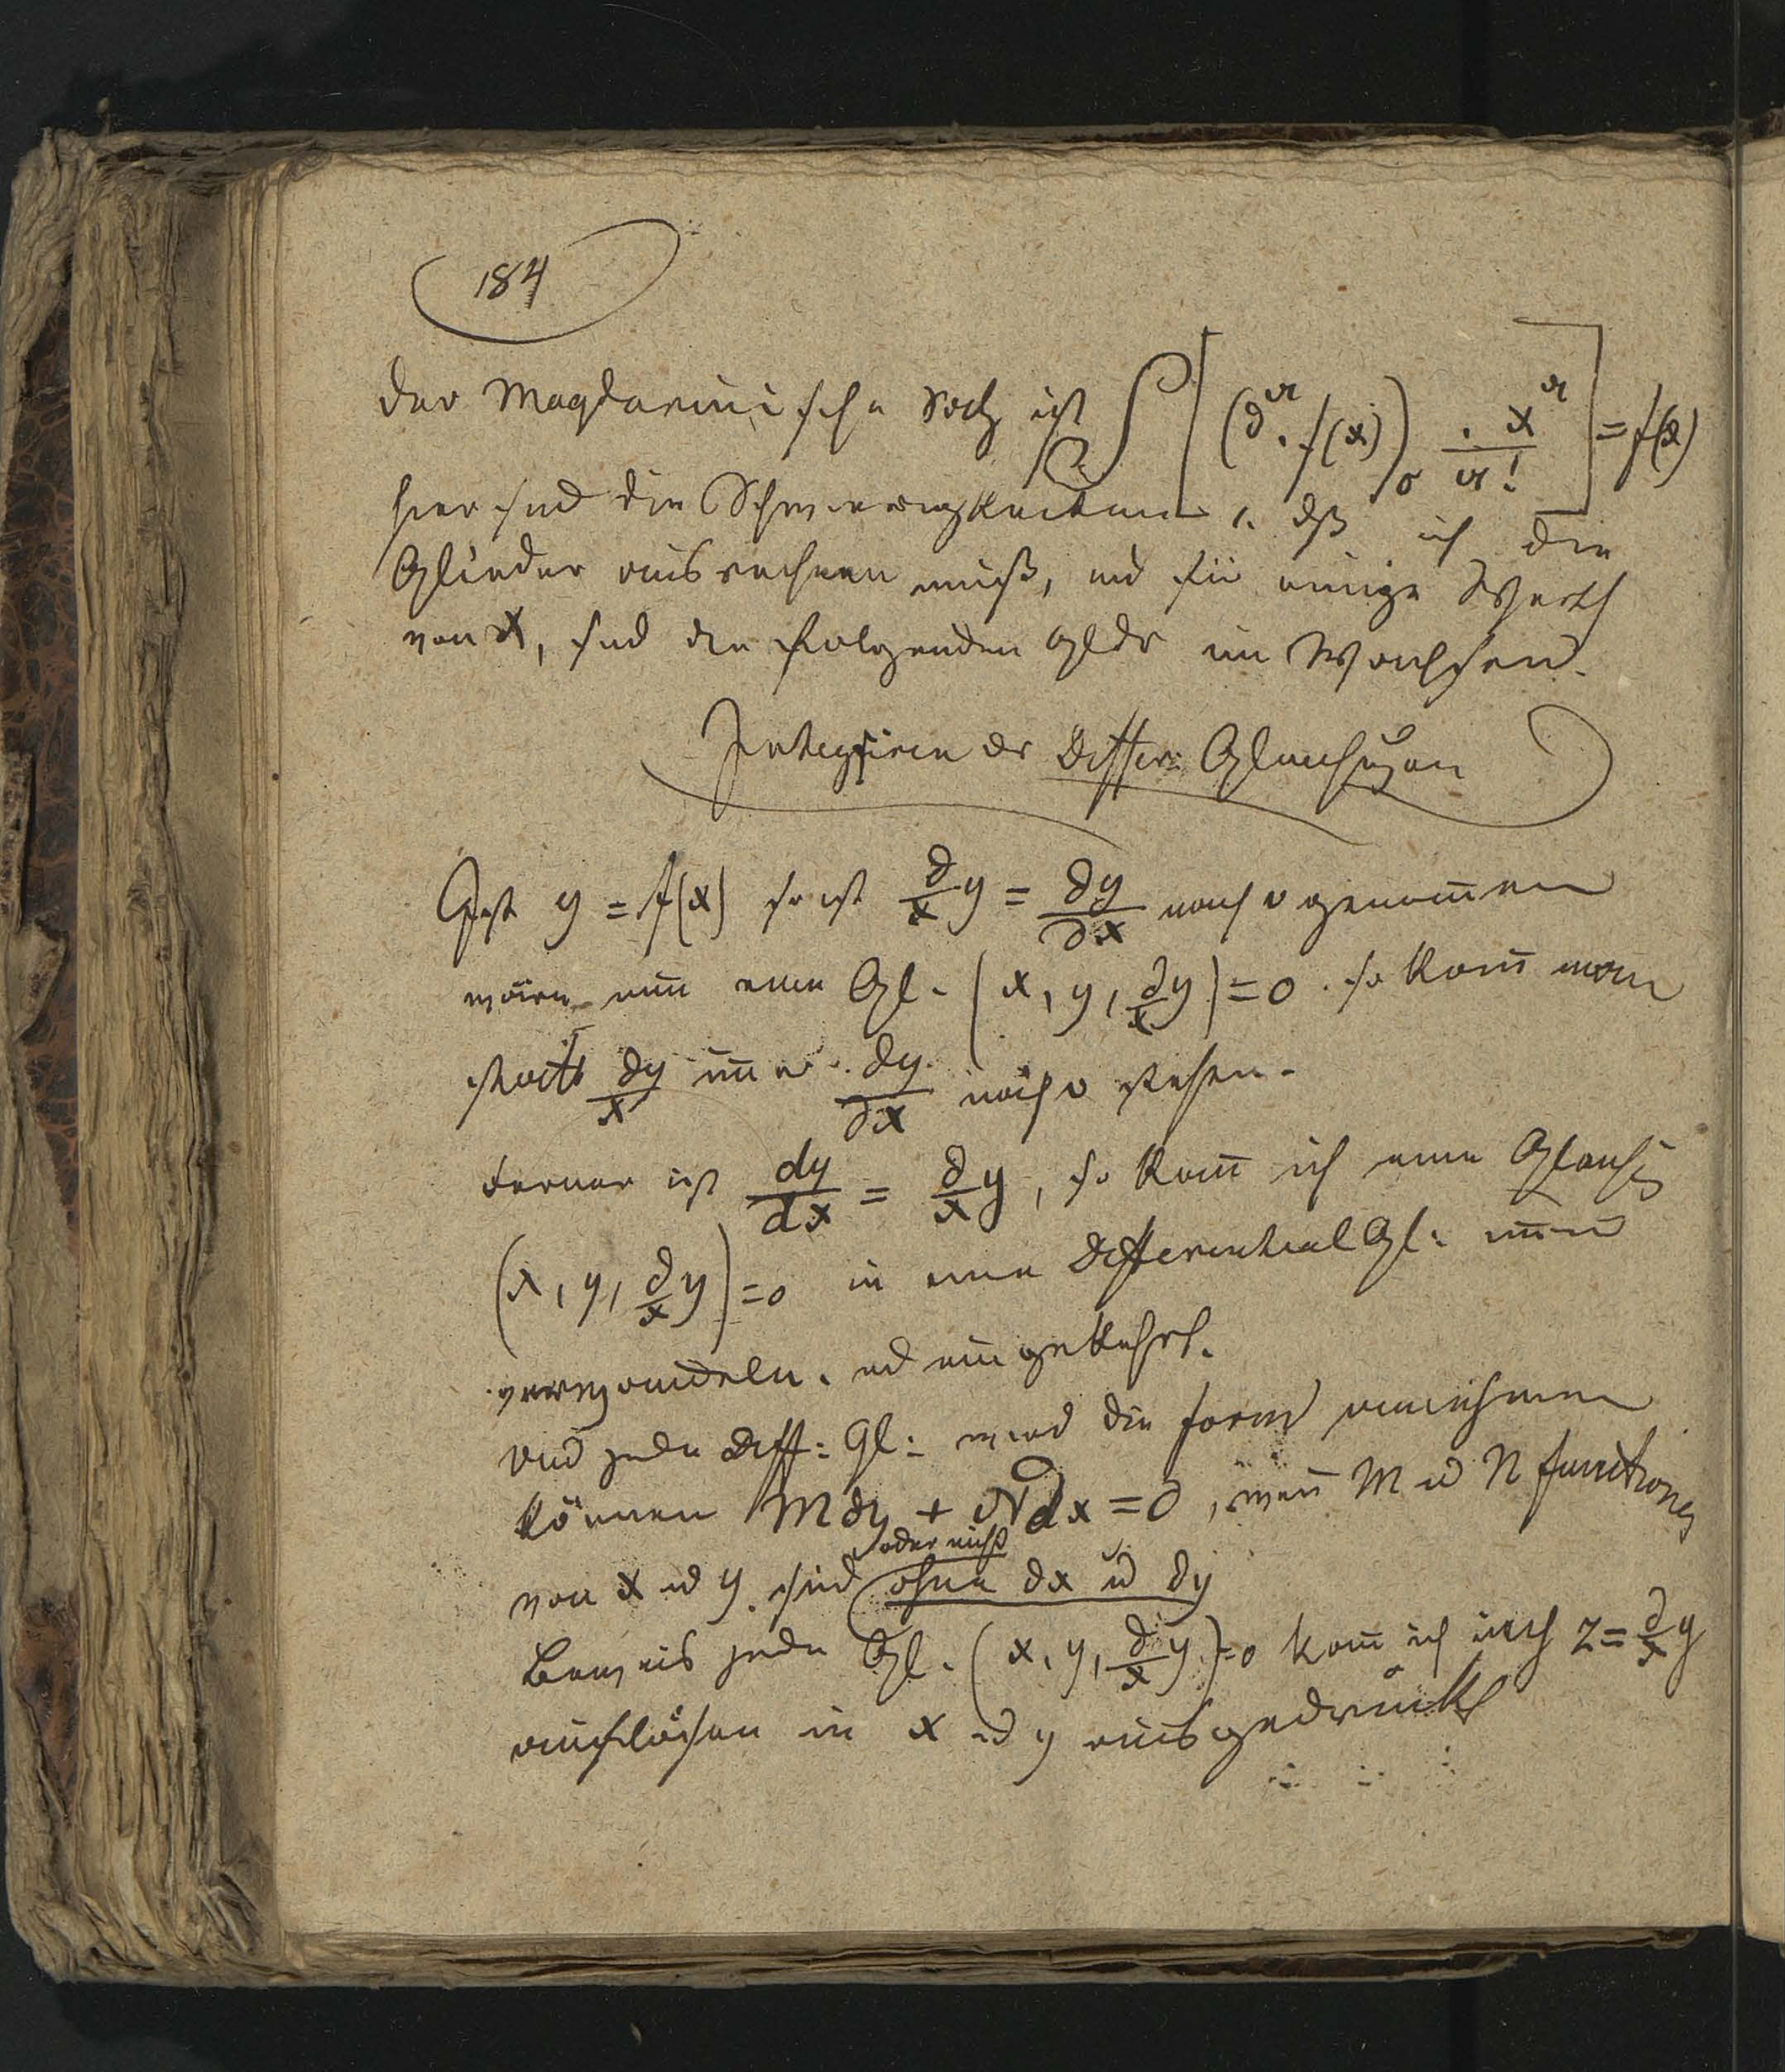 184
der Maqlarinische Satz ist S[(∂^a. f(x))_0 . x^a/a!] = f(x)
hier sind die Schwierigkeiten 1. dß ich die
Glieder ausrechnen muß, und für einige Werth
von x, sind die folgenden Gldr im Wachsen.
Integriren der Differ: Gleichungen
Ist y = f(x) so ist ∂/x y = ∂y/∂x nach genom̄en
wäre nun eine Gl. (x, y, ∂/x y) = 0. so kan̄ man
statt ∂y/x im̄er ∂y/∂x stehen.
Ferner ist dy/dx = ∂/x y, so kan̄ ich eine Gleichg
(x, y, ∂/x y) = 0 in eine Differential Gl:
verwandeln. und umgekehrt.
und jede Diff: Gl: wird die Form annehmen
können M dy + N dx = 0, wen̄ M u N functionen
von x u y sind oder nicht ohne dx u dy
Beweis jede Gl. (x, y, ∂/x y) = 0 kan̄ ich nach z = ∂/x y
auflösen in x u y ausgedrückt